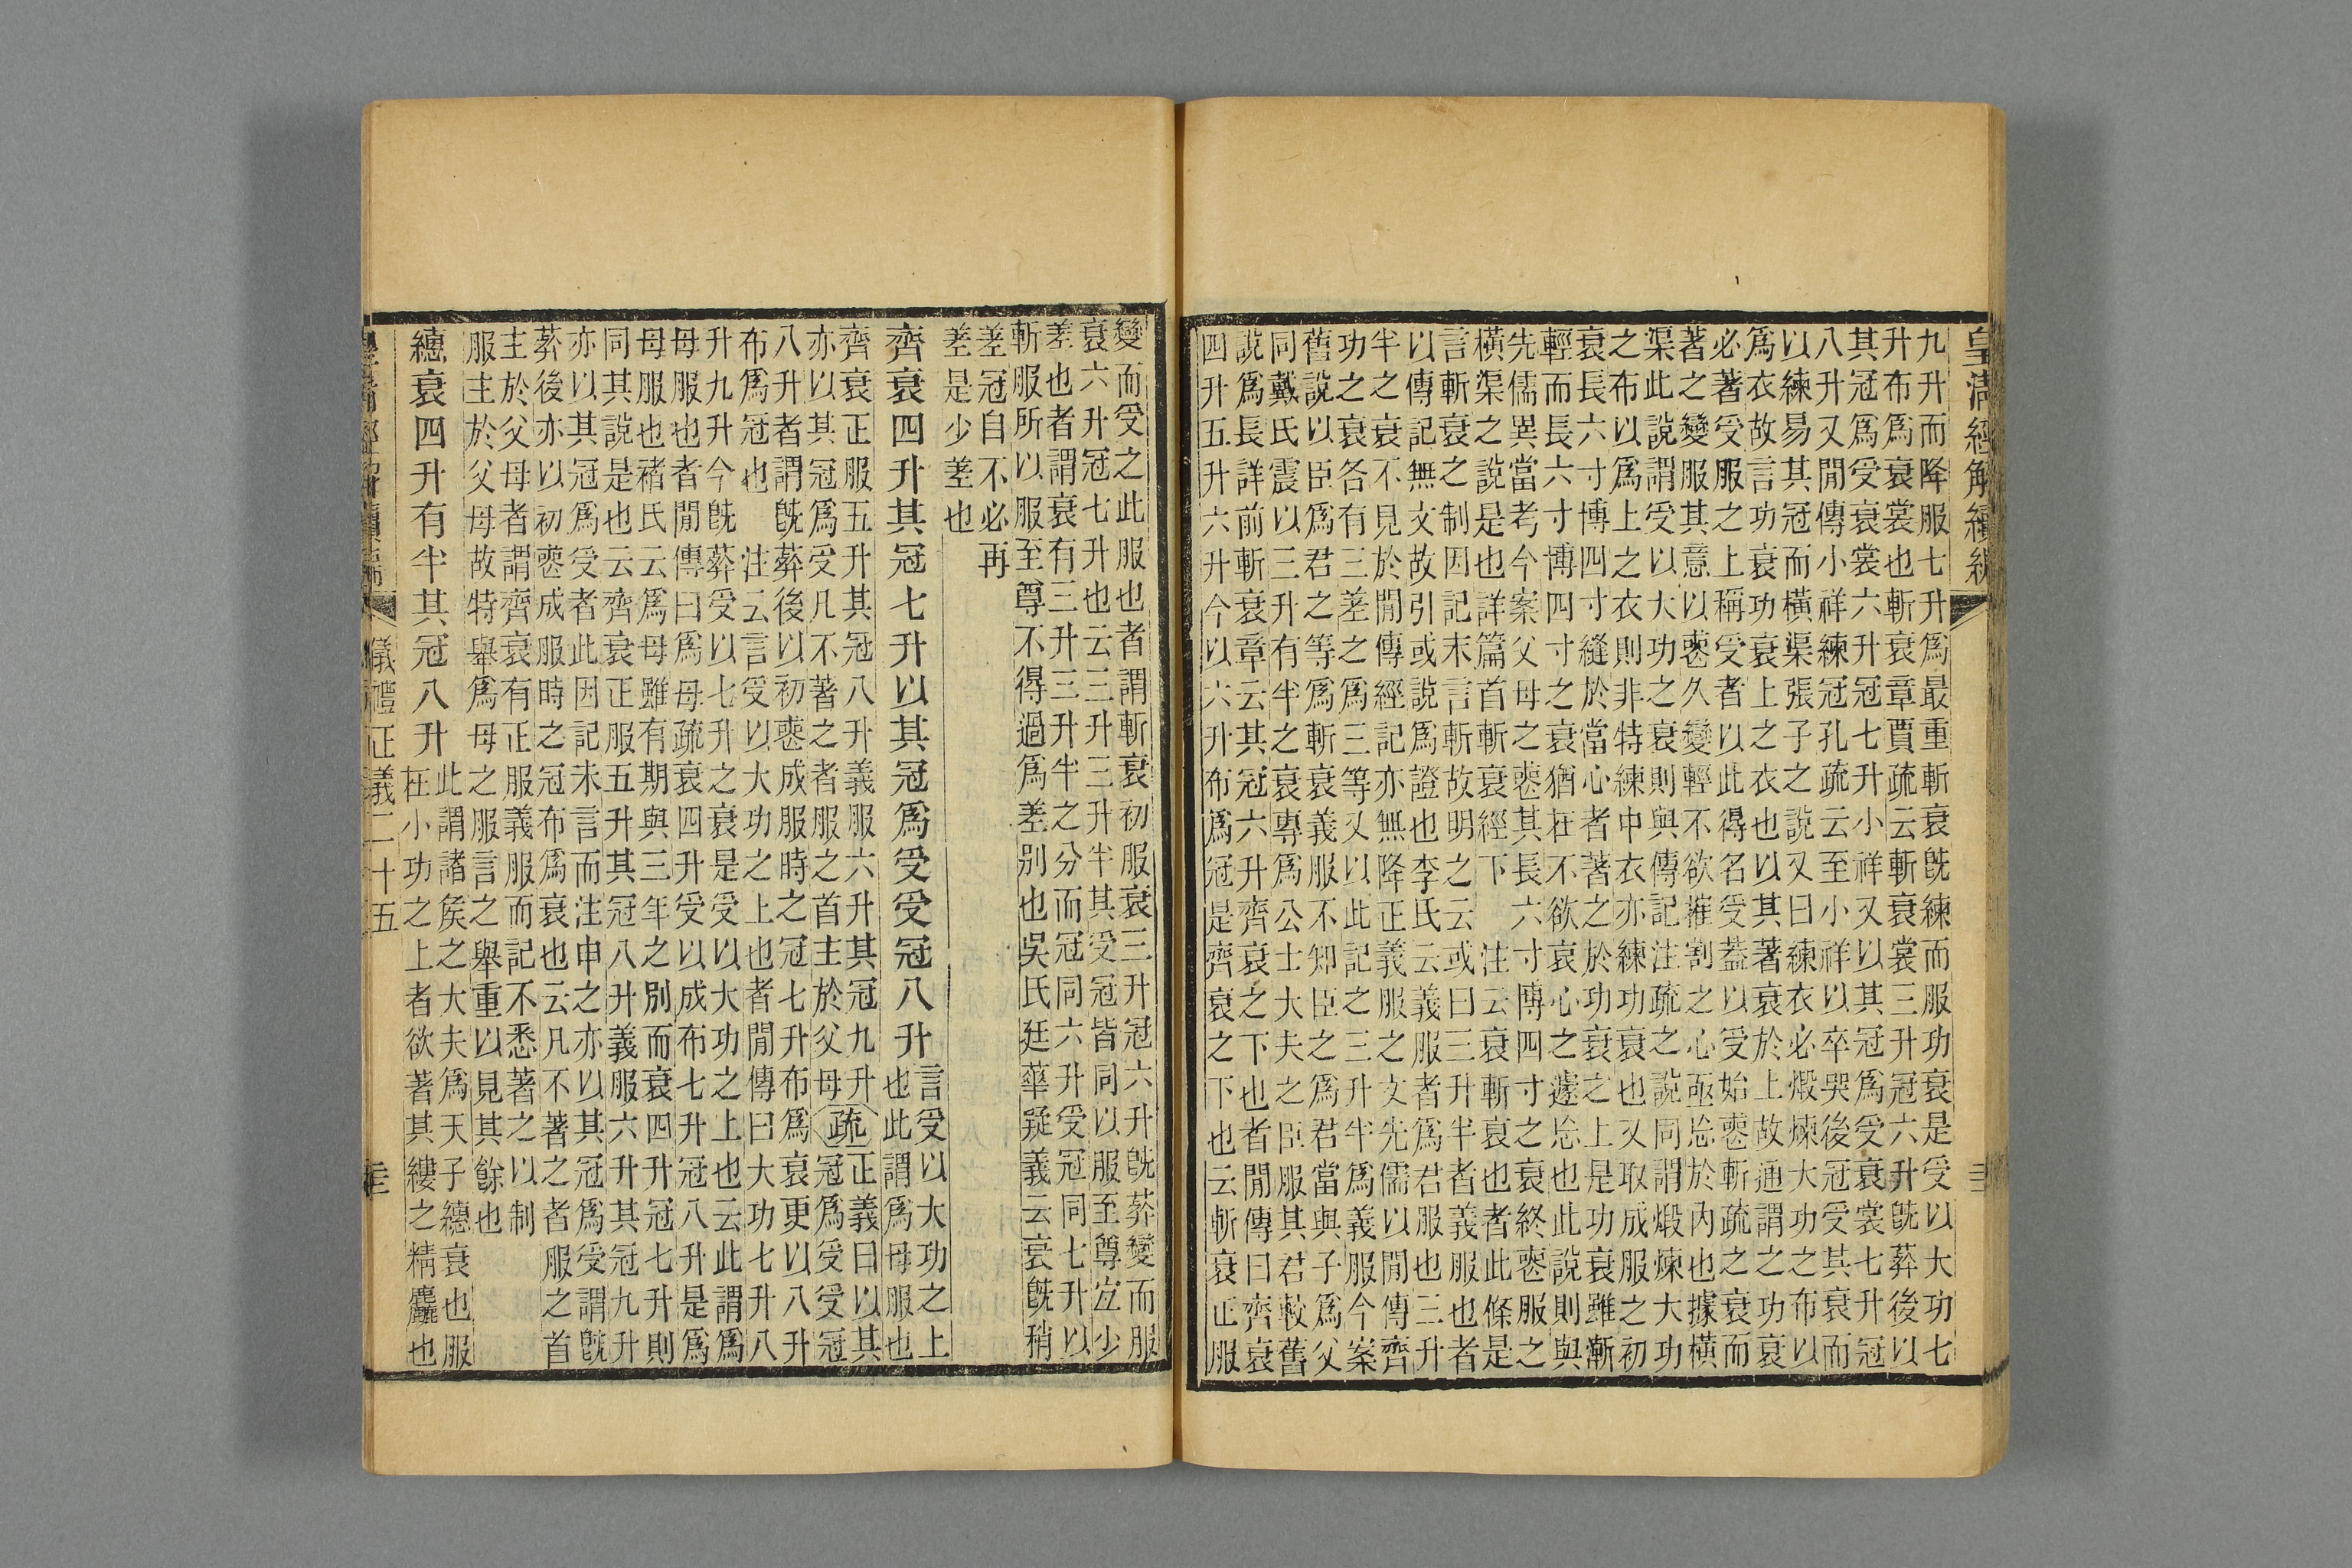 皇清經解續編
九升而降服七升爲最重斬衰旣練而服功衰是受以大功七
升布爲衰裳也斬衰章賈疏云斬衰裳三升冠六升旣葬後以
其冠爲受衰裳六升冠七升小祥又以其冠爲受衰裳七升冠
八升又閒傳小祥練冠孔疏云至小祥以卒哭後冠受其衰而
以練易其冠而橫渠張子之說又曰練衣必煅煉大功之布以
爲衣故言功衰功衰上之衣也以其著衰於上故通謂之功衰
必著受服之上稱受者以此得名受蓋以受始喪斬疏之衰而
著之變服其意以喪久變輕不欲摧割之心亟忘於內也據橫
渠此說謂受以大功之衰則與傳記注疏之說同謂煅煉大功
之布以爲上之衣則非特練中衣亦練功衰也又取成服之初
衰長六寸博四寸縫於當心者著之於功衰之上是功衰雖漸
輕而長六寸博四寸之衰猶在不欲哀心之遽忘也此說則與
先儒異當考今案父母之喪其長六寸博四寸之衰終喪服之
橫渠之說是也詳篇首斬衰絰下　注云衰斬衰也者此條是
言斬衰之制因記末言斬故明之云或曰三升半者義服也者
以傳記無文故引或說爲證也李氏云義服者爲君服也三升
半之衰不見於閒傳經記亦無降正義服之文先儒以閒傳齊
功之衰各有三差之爲三等又以此記之三升半爲義服今案
舊說以臣爲君之等爲斬衰義服不知臣之爲君當與子爲父
同戴氏震以三升有半之衰專爲公士大夫之臣服其君較舊
說爲長詳前斬衰章云其冠六升齊衰之下也者閒傳曰齊衰
四升五升六升今以六升布爲冠是齊衰之下也云斬衰正服
變而受之此服也者謂斬衰初服衰三升冠六升旣葬變而服
衰六升冠七升也云三升三升半其受冠皆同以服至尊宜少
差也者謂衰有三升三升半之分而冠同六升受冠同七升以
斬服所以服至尊不得過爲差別也吳氏廷華疑義云衰旣稍
差冠自不必再
差是少差也
齊衰四升其冠七升以其冠爲受受冠八升
言受以大功之上
也此謂爲母服也
齊衰正服五升其冠八升義服六升其冠九升
亦以其冠爲受凡不著之者服之首主於父母
疏
正義曰以其
冠爲受受冠
八升者謂旣葬後以初喪成服時之冠七升布爲衰更以八升
布爲冠也　注云言受以大功之上也者閒傳曰大功七升八
升九升今旣葬受以七升之衰是受以大功之上也云此謂爲
母服也者閒傳曰爲母疏衰四升受以成布七升冠八升是爲
母服也褚氏云爲母雖有期與三年之別而衰四升冠七升則
同其說是也云齊衰正服五升其冠八升義服六升其冠九升
亦以其冠爲受者此因記未言而注申之亦以其冠爲受謂旣
葬後亦以初喪成服時之冠布爲衰也云凡不著之者服之首
主於父母者謂齊衰有正服義服而記不悉著之以制
服主於父母故特舉爲母之服言之舉重以見其餘也
繐衰四升有半其冠八升
此謂諸矦之大夫爲天子繐衰也服
在小功之上者欲著其縷之精麤也
儀禮正義二十五